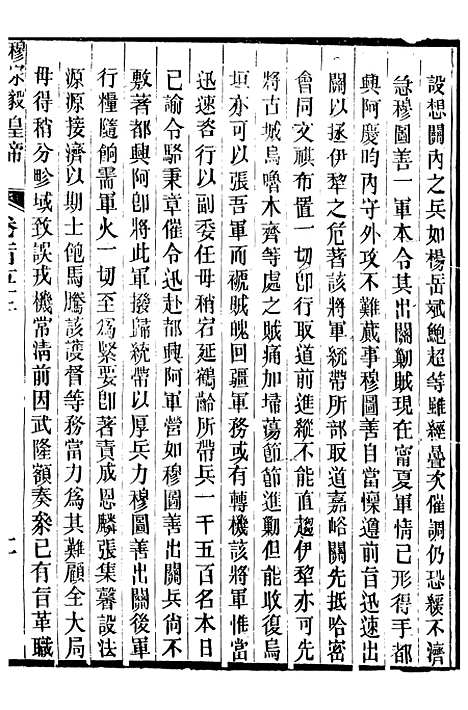 設想關內之兵如楊岳斌鮑超等雖經疊次催調仍恐緩不濟
急穆圖善一軍本令其出關勦賊現在甯夏軍情已形得手都
興阿慶昀內守外攻不難蕆事穆圖善自當懍遵前旨迅速出
關以拯伊犂之危著該將軍統帶所部取道嘉峪關先抵哈密
會同文祺布置一切卽行取道前進縱不能直趨伊犂亦可先
將古城烏嚕木齊等處之賊痛加埽蕩節節進勦但能收復烏
垣亦可以張吾軍而褫賊魄回疆軍務或有轉機該將軍惟當
迅速吝行以副委任毋稍宕延鶴齡所帶兵一千五百名本日
已諭令駱秉章催令迅赴都興阿軍營如穆圖善出關兵尚不
敷著都興阿卽將此軍撥歸統帶以厚兵力穆圖善出關後軍
行糧隨餉需軍火一切至爲緊要卽著責成恩麟張集馨設法
源源接濟以期士飽馬騰該護督等務當力爲其難顧全大局
毋得稍分畛域致誤戎機常清前因武隆額奏叅已有旨革職
穆宗毅皇帝